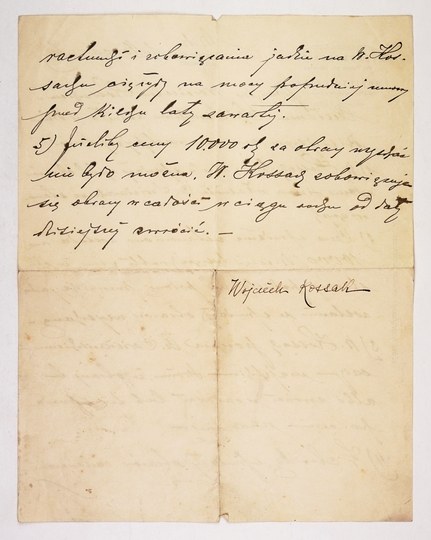 rachunki i zobowiązania jakie na W. Kos-
saku ciężyły na mocy poprzedniej umowy
przed kilku laty zawartej.
5) Jeśliby ceny 10000 za obrazy wyzyskać
nie było można, W. Kossak zobowiązuje
się obrazy w całości w ciągu roku od daty
dzisiejszej zwrócić. —
Wojciech Kossak